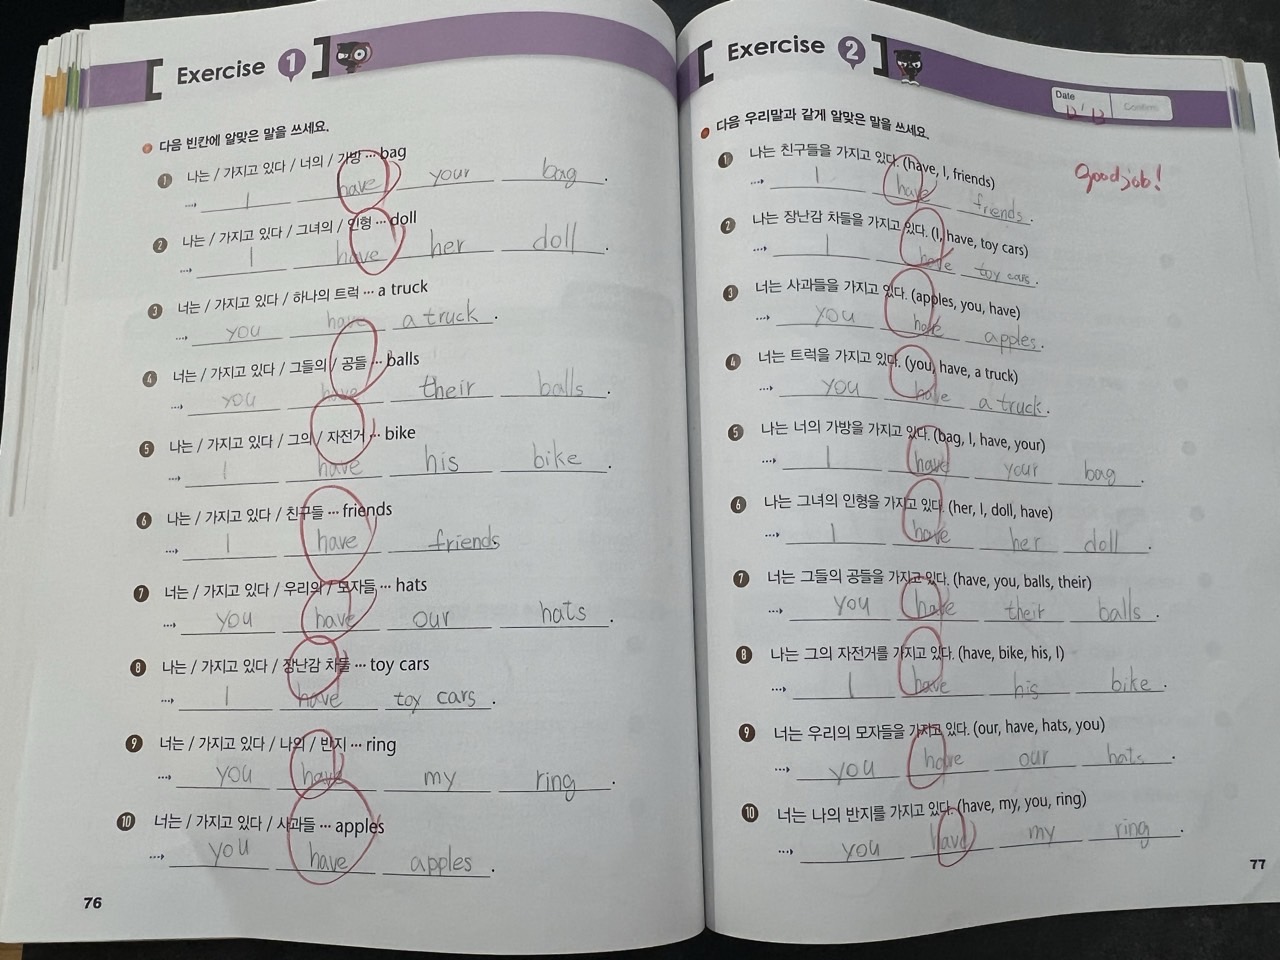 [ Exercise 1 ]
다음 빈칸에 알맞은 말을 쓰세요.
1 나는 / 가지고 있다 / 너의 / 가방 ··· bag
I have your bag.
2 나는 / 가지고 있다 / 그녀의 / 인형 ··· doll
I have her doll.
3 너는 / 가지고 있다 / 하나의 트럭 ··· a truck
you have a truck.
4 너는 / 가지고 있다 / 그들의 / 공들 ··· balls
you have their balls.
5 나는 / 가지고 있다 / 그의 / 자전거 ··· bike
I have his bike.
6 나는 / 가지고 있다 / 친구들 ··· friends
I have friends.
7 너는 / 가지고 있다 / 우리의 / 모자들 ··· hats
you have our hats.
8 나는 / 가지고 있다 / 장난감 차들 ··· toy cars
I have toy cars.
9 너는 / 가지고 있다 / 나의 / 반지 ··· ring
you have my ring.
10 너는 / 가지고 있다 / 사과들 ··· apples
you have apples.
76
[ Exercise 2 ]
Date 12/13 Confirm
다음 우리말과 같게 알맞은 말을 쓰세요.
Good job!
1 나는 친구들을 가지고 있다. (have, I, friends)
I have friends.
2 나는 장난감 차들을 가지고 있다. (I, have, toy cars)
I have toy cars.
3 너는 사과들을 가지고 있다. (apples, you, have)
you have apples.
4 너는 트럭을 가지고 있다. (you, have, a truck)
you have a truck.
5 나는 너의 가방을 가지고 있다. (bag, I, have, your)
I have your bag.
6 나는 그녀의 인형을 가지고 있다. (her, I, doll, have)
I have her doll.
7 너는 그들의 공들을 가지고 있다. (have, you, balls, their)
you have their balls.
8 나는 그의 자전거를 가지고 있다. (have, bike, his, I)
I have his bike.
9 너는 우리의 모자들을 가지고 있다. (our, have, hats, you)
you have our hats.
10 너는 나의 반지를 가지고 있다. (have, my, you, ring)
you have my ring.
77